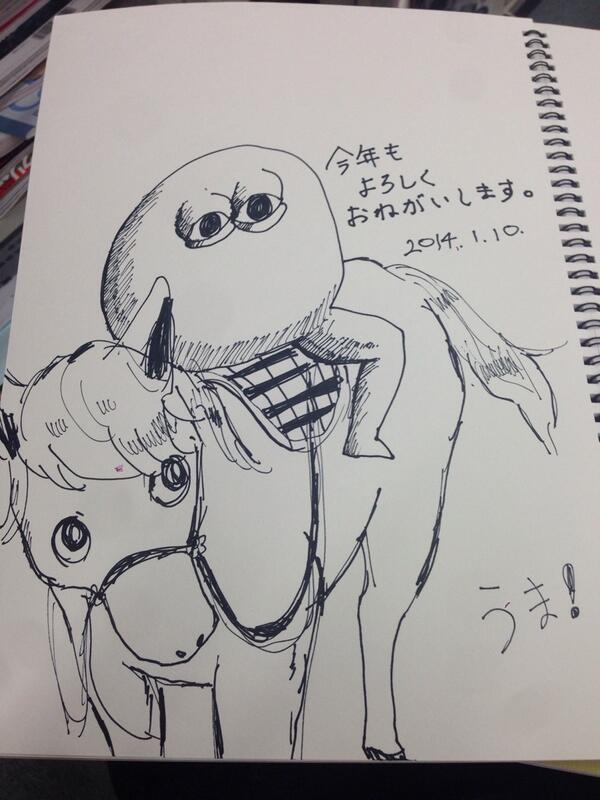 今年も
よろしく
おねがいします。
2014.1.10.
うま!